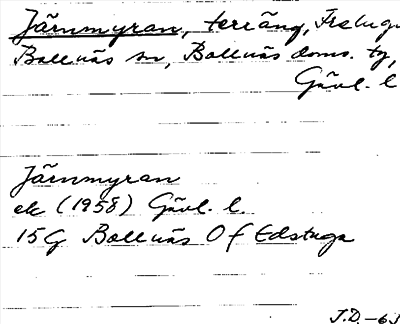 Järnmyran, terräng, Frelugn
Bollnäs sn, Bollnäs doms. tg,
Gävl. l
Järnmyran
ek (1958) Gävl. l.
15G Bollnäs 0 f Edstuga
J.D. -63